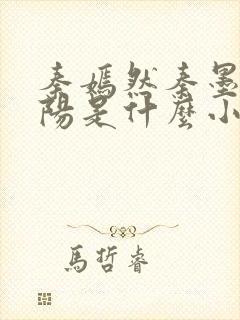 秦嫣然秦墨
陽是什麼小
馬哲睿